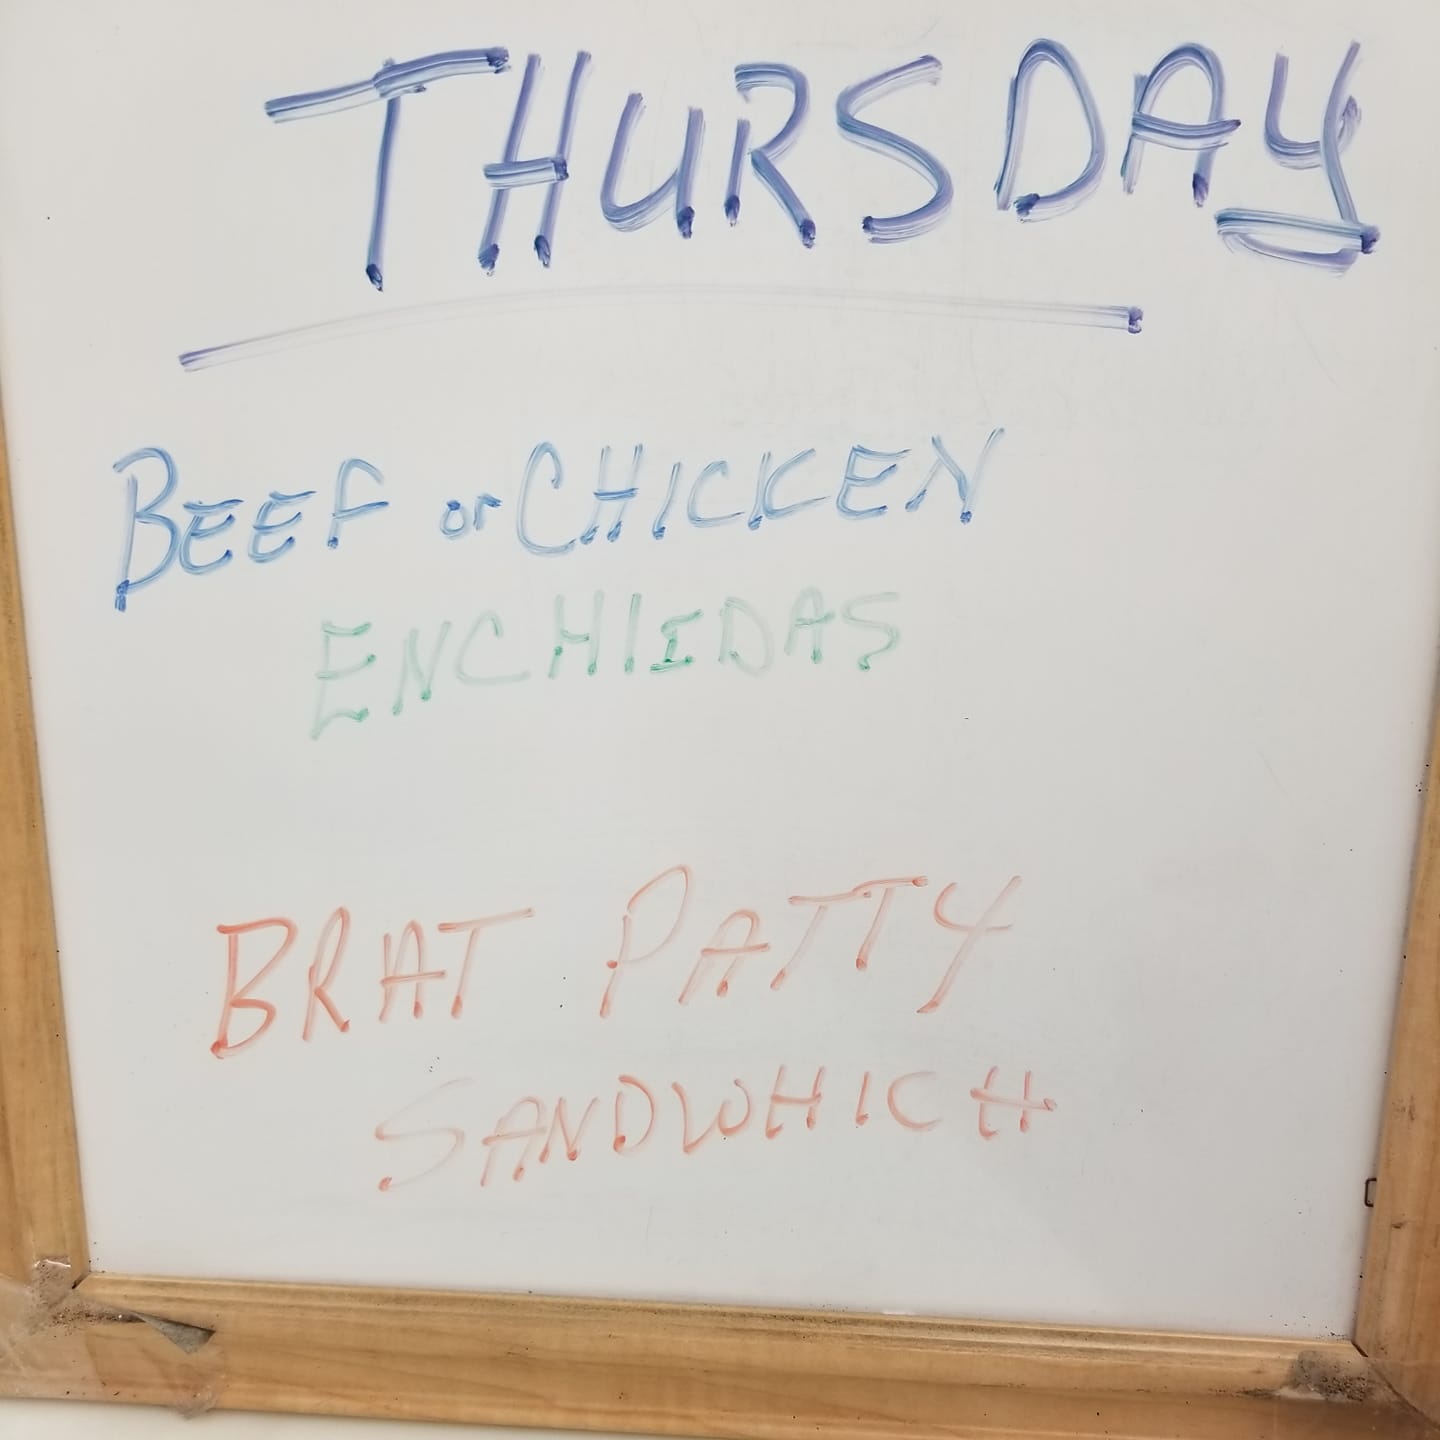 THURSDAY
BEEF or CHICKEN
ENCHIIDAS
BRAT PATTY
SANDWHICH